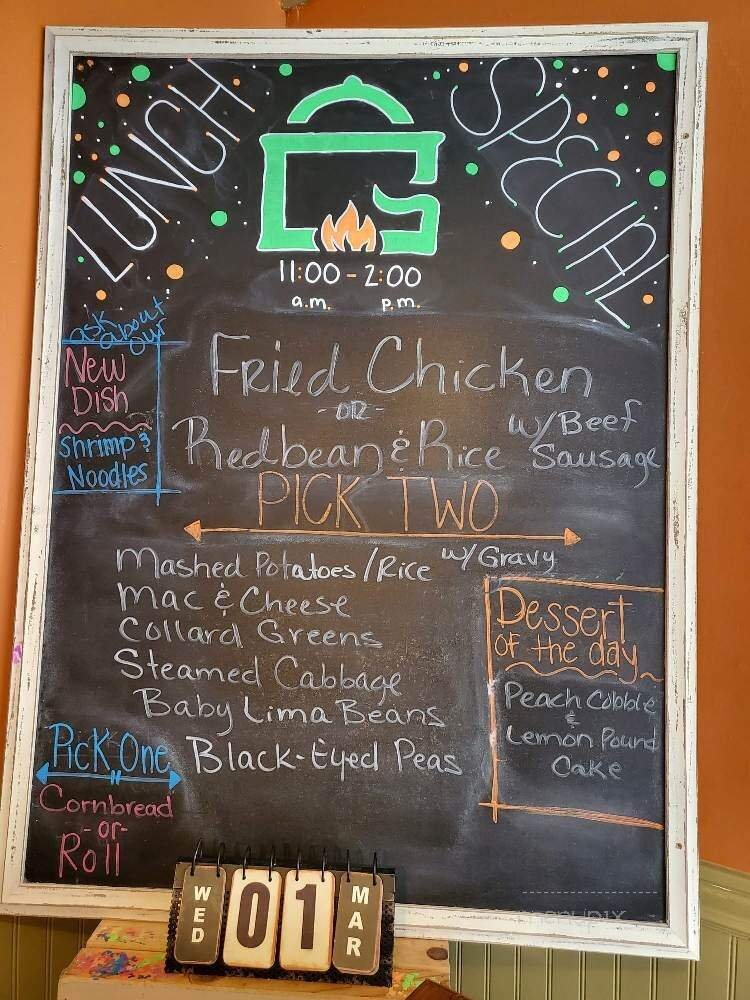 LUNCH SPECIAL
11:00 - 2:00
a.m. p.m.
ask
about
our
New
Dish
Shrimp &
Noodles
Fried Chicken
- OR -
Redbean & Rice w/ Beef
Sausage
PICK TWO
Mashed Potatoes / Rice w/ Gravy
Mac & Cheese
Collard Greens
Steamed Cabbage
Baby Lima Beans
Black-Eyed Peas
Dessert
of the day
Peach Cobble
&
Lemon Pound
Cake
Pick One
Cornbread
- or -
Roll
WED 01 MAR
menupix